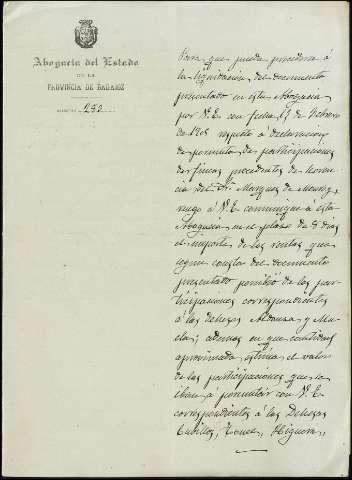 Abogacía del Estado
DE LA
PROVINCIA DE BADAJOZ
252
Para que pueda procederse á
la liquidación del documento
presentado en esta Abogacía
por V.E. con fecha 17 de Febrero
de 1905 respecto a declaraciones
de permuta de participaciones
de fincas procedentes de herencia
del Sr. Marques de
ruego á V.E. comunique á esta
Abogacía en el plazo de 8 dias
el importe de las rentas que
segun consta del documento
presentado percibió de las par-
ticipaciones correspondientes
á las dehesas Aldonza y
; ademas en que cantidad
aproximada estima el valor
de las participaciones que se
iban á permutar con V.E.
correspondientes á las Dehesas
Cubillos, Higuera,